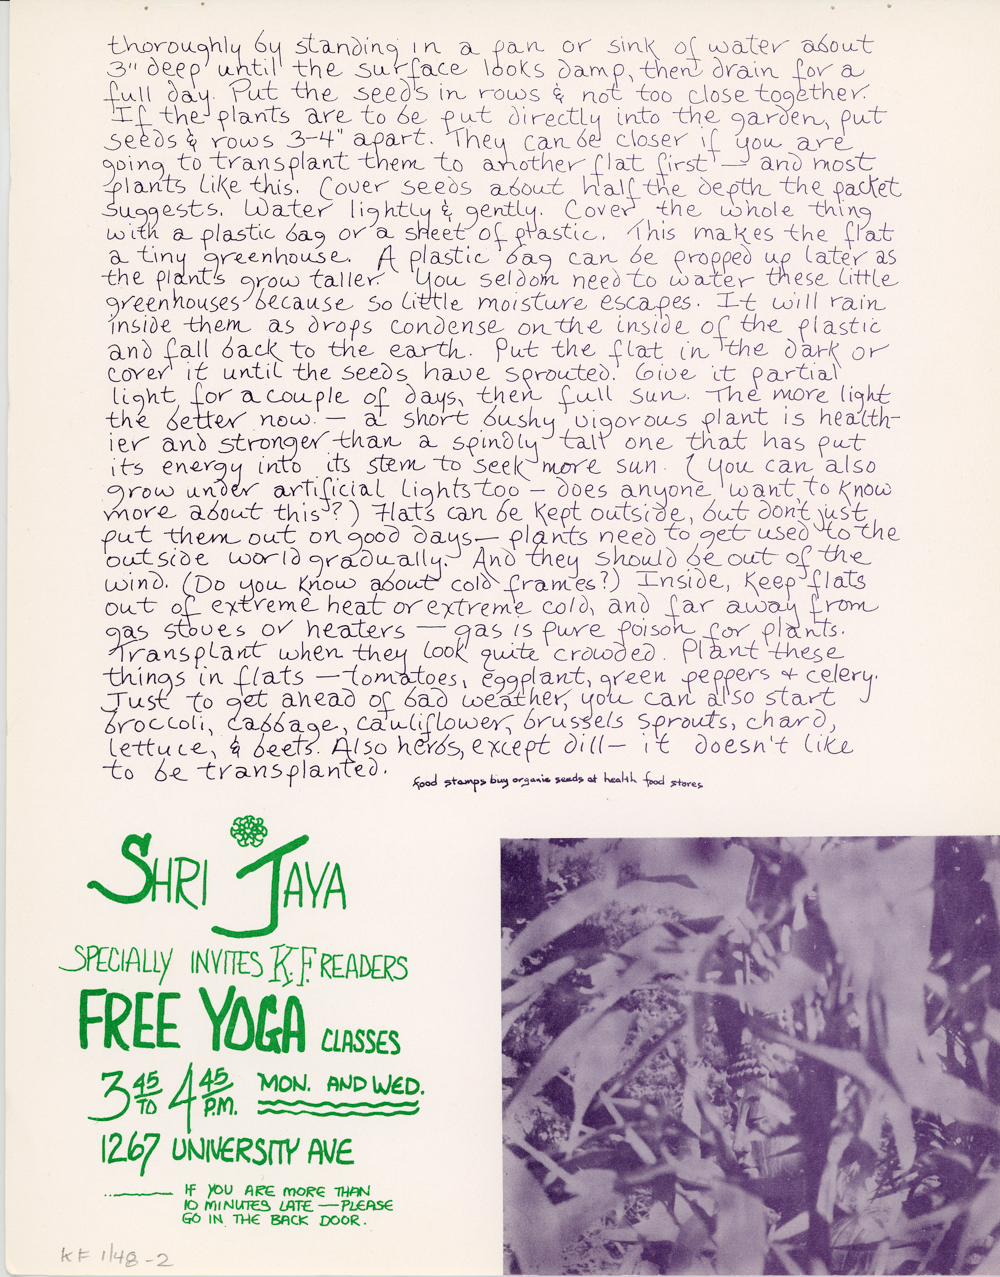 thoroughly by standing in a pan or sink of water about
3" deep until the surface looks damp, then drain for a
full day. Put the seeds in rows & not too close together.
If the plants are to be put directly into the garden, put
seeds & rows 3-4" apart. They can be closer if you are
going to transplant them to another flat first — and most
plants like this. Cover seeds about half the depth the packet
suggests. Water lightly & gently. Cover the whole thing
with a plastic bag or a sheet of plastic. This makes the flat
a tiny greenhouse. A plastic bag can be propped up later as
the plants grow taller. You seldom need to water these little
greenhouses because so little moisture escapes. It will rain
inside them as drops condense on the inside of the plastic
and fall back to the earth. Put the flat in the dark or
cover it until the seeds have sprouted. Give it partial
light for a couple of days, then full sun. The more light
the better now — a short bushy vigorous plant is health-
ier and stronger than a spindly tall one that has put
its energy into its stem to seek more sun. (You can also
grow under artificial lights too — does anyone want to know
more about this?) Flats can be kept outside, but don't just
put them out on good days — plants need to get used to the
outside world gradually. And they should be out of the
wind. (Do you know about cold frames?) Inside, keep flats
out of extreme heat or extreme cold, and far away from
gas stoves or heaters — gas is pure poison for plants.
Transplant when they look quite crowded. Plant these
things in flats — tomatoes, eggplant, green peppers + celery.
Just to get ahead of bad weather, you can also start
broccoli, cabbage, cauliflower, brussels sprouts, chard,
lettuce, & beets. Also herbs, except dill — it doesn't like
to be transplanted.
food stamps buy organic seeds at health food stores
SHRI JAYA
SPECIALLY INVITES K.F. READERS
FREE YOGA CLASSES
3 45 TO 4 45 P.M. MON. AND WED.
1267 UNIVERSITY AVE
IF YOU ARE MORE THAN
10 MINUTES LATE — PLEASE
GO IN THE BACK DOOR.
KF 1/48-2